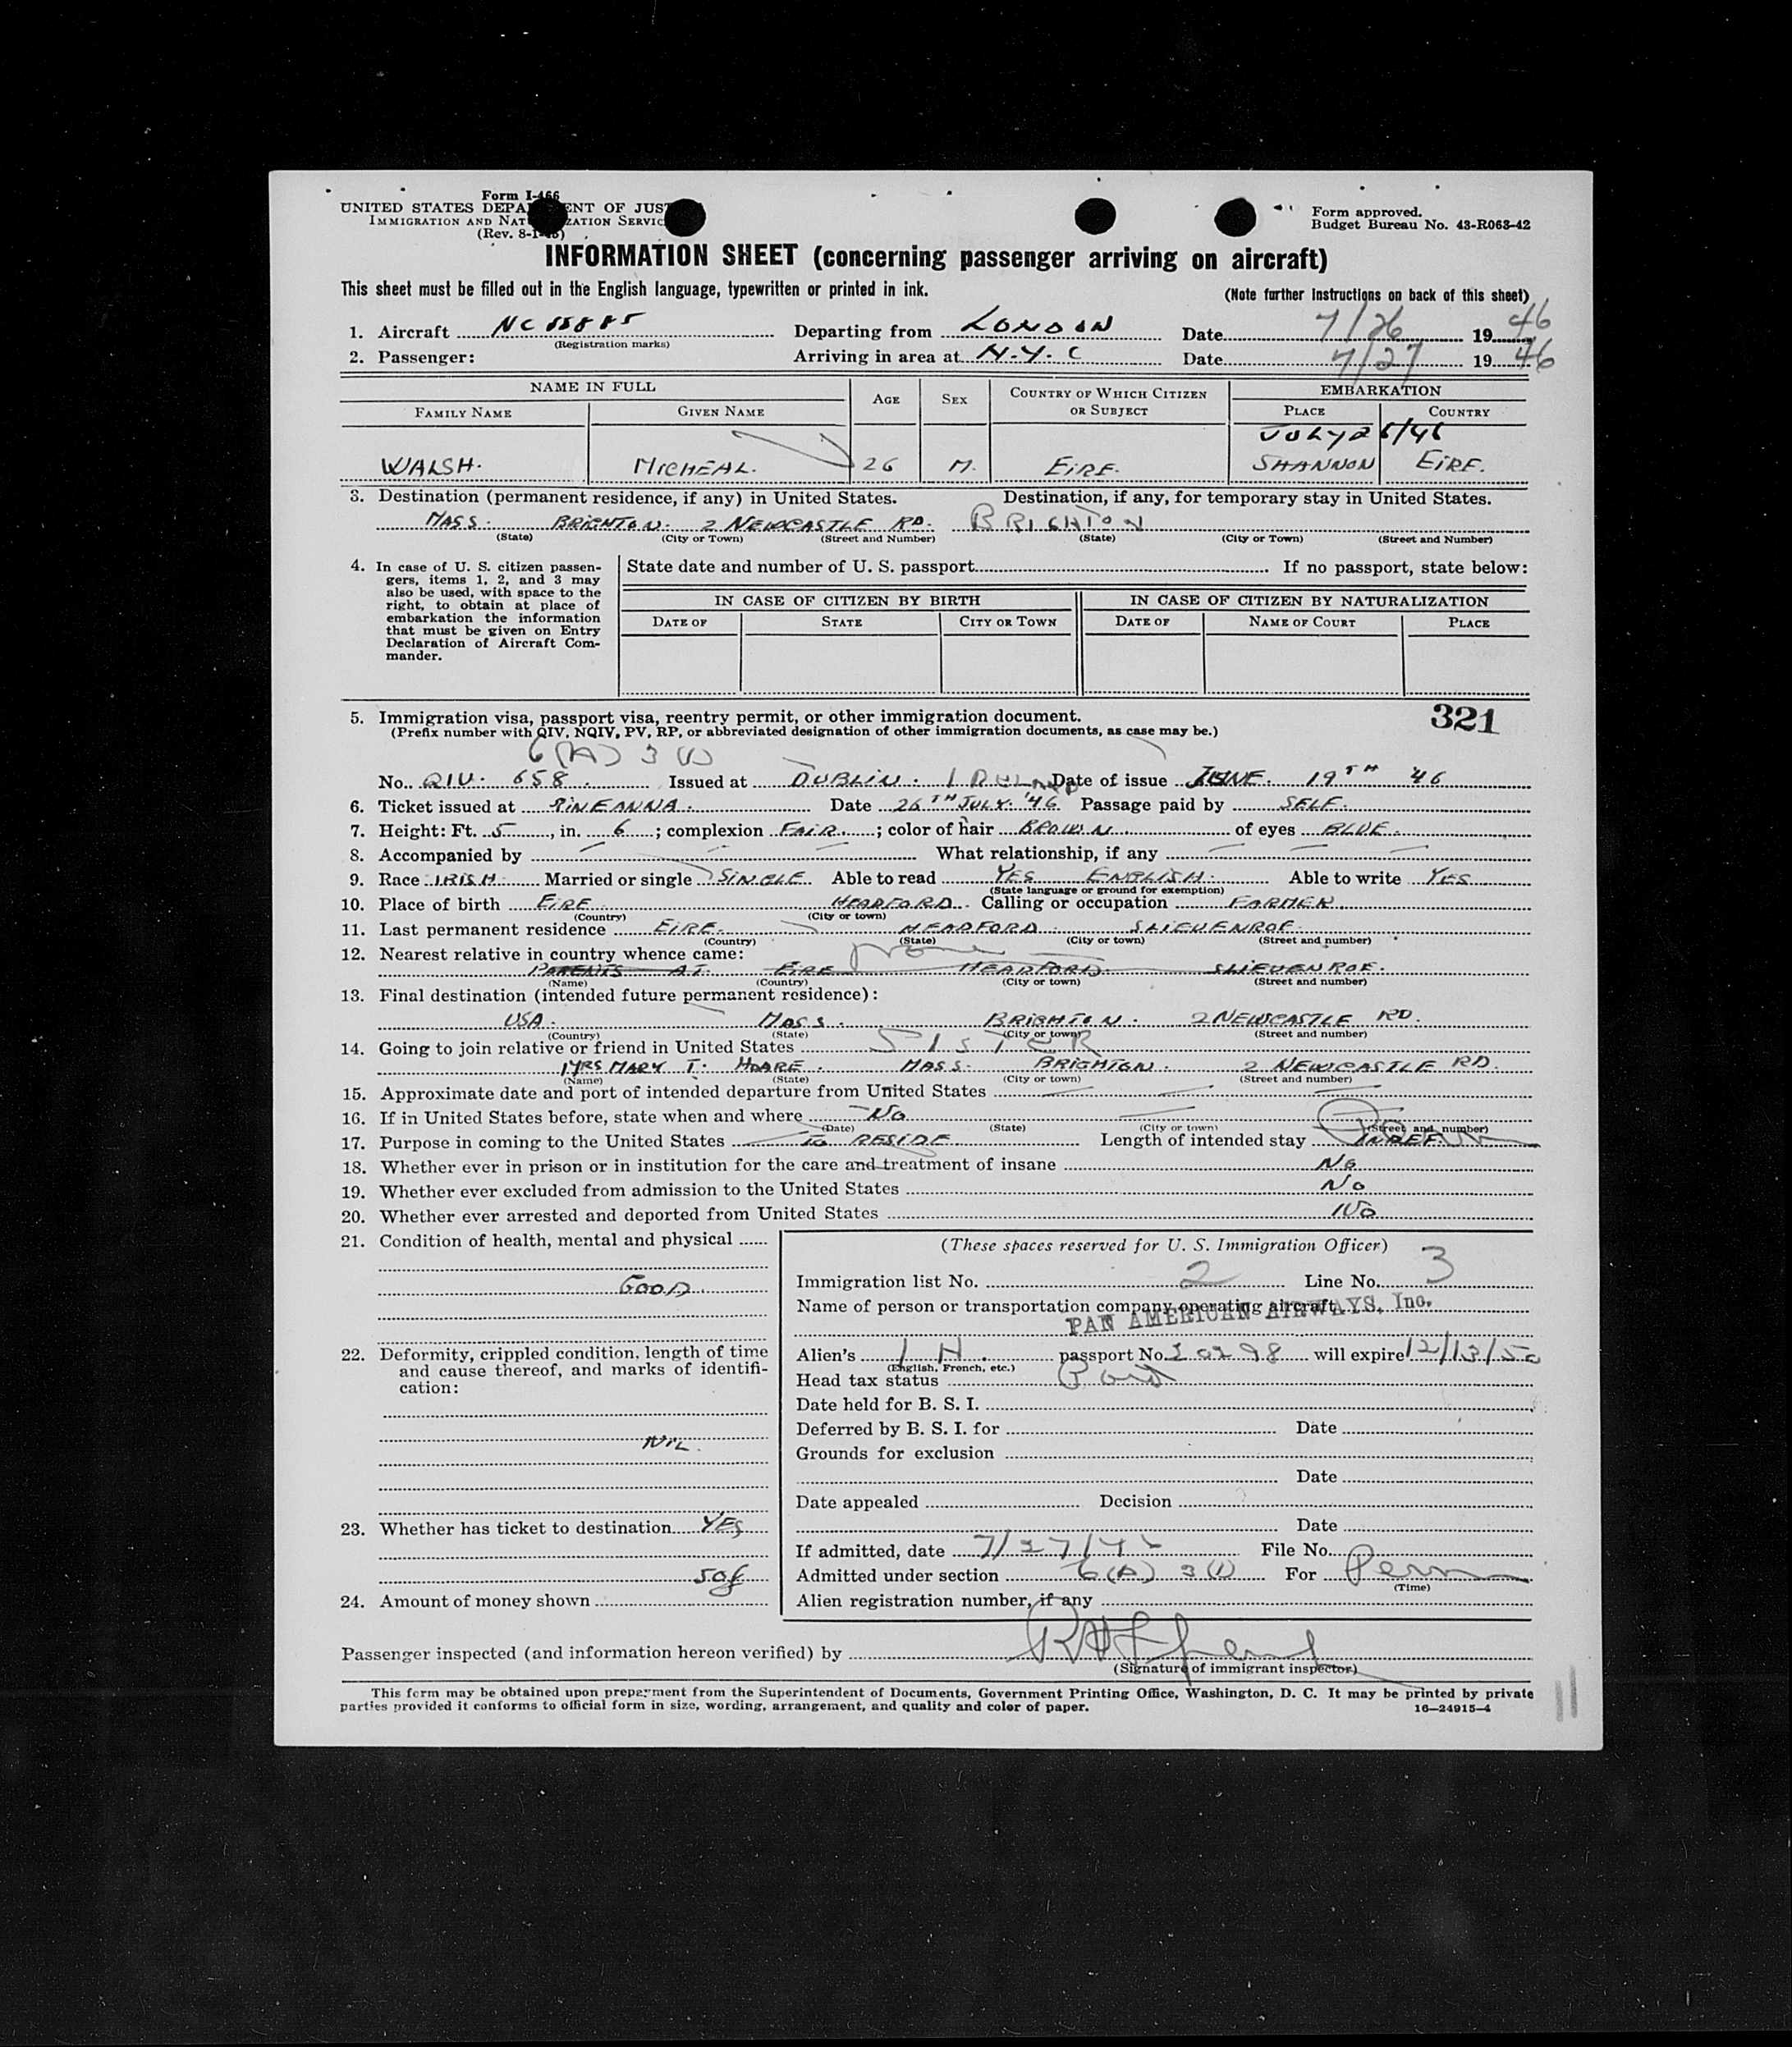 Form I-466
UNITED STATES DEPARTMENT OF JUSTICE
IMMIGRATION AND NATURALIZATION SERVICE
(Rev. 8-1-45)
Form approved.
Budget Bureau No. 43-R063-42
INFORMATION SHEET (concerning passenger arriving on aircraft)
This sheet must be filled out in the English language, typewritten or printed in ink.
(Note further instructions on back of this sheet)
1. Aircraft NC 88885 Departing from LONDON Date 7/26 1946
(Registration marks)
2. Passenger: Arriving in area at N.Y.C Date 7/27 1946
NAME IN FULL AGE SEX COUNTRY OF WHICH CITIZEN OR SUBJECT EMBARKATION
FAMILY NAME GIVEN NAME PLACE COUNTRY
JULY 26/46
WALSH. MICHEAL. 26 M. EIRE. SHANNON EIRE.
3. Destination (permanent residence, if any) in United States. Destination, if any, for temporary stay in United States.
MASS. BRIGHTON. 2 NEWCASTLE RD. BRIGHTON
(State) (City or Town) (Street and Number) (State) (City or Town) (Street and Number)
4. In case of U. S. citizen passengers, items 1, 2, and 3 may also be used, with space to the right, to obtain at place of embarkation the information that must be given on Entry Declaration of Aircraft Commander.
State date and number of U. S. passport If no passport, state below:
IN CASE OF CITIZEN BY BIRTH IN CASE OF CITIZEN BY NATURALIZATION
DATE OF STATE CITY OR TOWN DATE OF NAME OF COURT PLACE
5. Immigration visa, passport visa, reentry permit, or other immigration document. 321
(Prefix number with QIV, NQIV, PV, RP, or abbreviated designation of other immigration documents, as case may be.)
6(A) 3(1)
No. QIV. 658. Issued at DUBLIN. IRELAND Date of issue JUNE. 19TH '46
6. Ticket issued at RINEANNA. Date 26TH JULY. '46 Passage paid by SELF.
7. Height: Ft. 5, in. 6; complexion FAIR.; color of hair BROWN. of eyes BLUE.
8. Accompanied by — — — What relationship, if any — — —
9. Race IRISH. Married or single SINGLE Able to read YES ENGLISH. Able to write YES
(State language or ground for exemption)
10. Place of birth EIRE HEADFORD. Calling or occupation FARMER.
(Country) (City or town)
11. Last permanent residence EIRE. HEADFORD. SLIEVENROE.
(Country) (State) (City or town) (Street and number)
12. Nearest relative in country whence came: None
PARENTS AT EIRE HEADFORD. SLIEVENROE.
(Name) (Country) (City or town) (Street and number)
13. Final destination (intended future permanent residence):
USA. MASS. BRIGHTON. 2 NEWCASTLE RD.
(Country) (State) (City or town) (Street and number)
14. Going to join relative or friend in United States SISTER
MRS MARY T. HOARE. MASS. BRIGHTON. 2 NEWCASTLE RD.
(Name) (State) (City or town) (Street and number)
15. Approximate date and port of intended departure from United States — — —
16. If in United States before, state when and where No
(Date) (State) (City or town) (Street and number)
17. Purpose in coming to the United States TO RESIDE Length of intended stay INDEF. Perm
18. Whether ever in prison or in institution for the care and treatment of insane No
19. Whether ever excluded from admission to the United States No
20. Whether ever arrested and deported from United States No
21. Condition of health, mental and physical
GOOD.
22. Deformity, crippled condition, length of time and cause thereof, and marks of identification:
NIL.
23. Whether has ticket to destination YES
24. Amount of money shown 50$
(These spaces reserved for U. S. Immigration Officer)
Immigration list No. 2 Line No. 3
Name of person or transportation company operating aircraft
PAN AMERICAN AIRWAYS, Inc.
Alien's passport No. 30298 will expire 12/13/50
(English, French, etc.)
Head tax status Paid
Date held for B. S. I.
Deferred by B. S. I. for Date
Grounds for exclusion
Date
Date appealed Decision
Date
If admitted, date 7/27/46 File No.
Admitted under section 6(A) 3(1) For Perm
(Time)
Alien registration number, if any
Passenger inspected (and information hereon verified) by
(Signature of immigrant inspector)
This form may be obtained upon prepayment from the Superintendent of Documents, Government Printing Office, Washington, D. C. It may be printed by private
parties provided it conforms to official form in size, wording, arrangement, and quality and color of paper. 16—24915-4